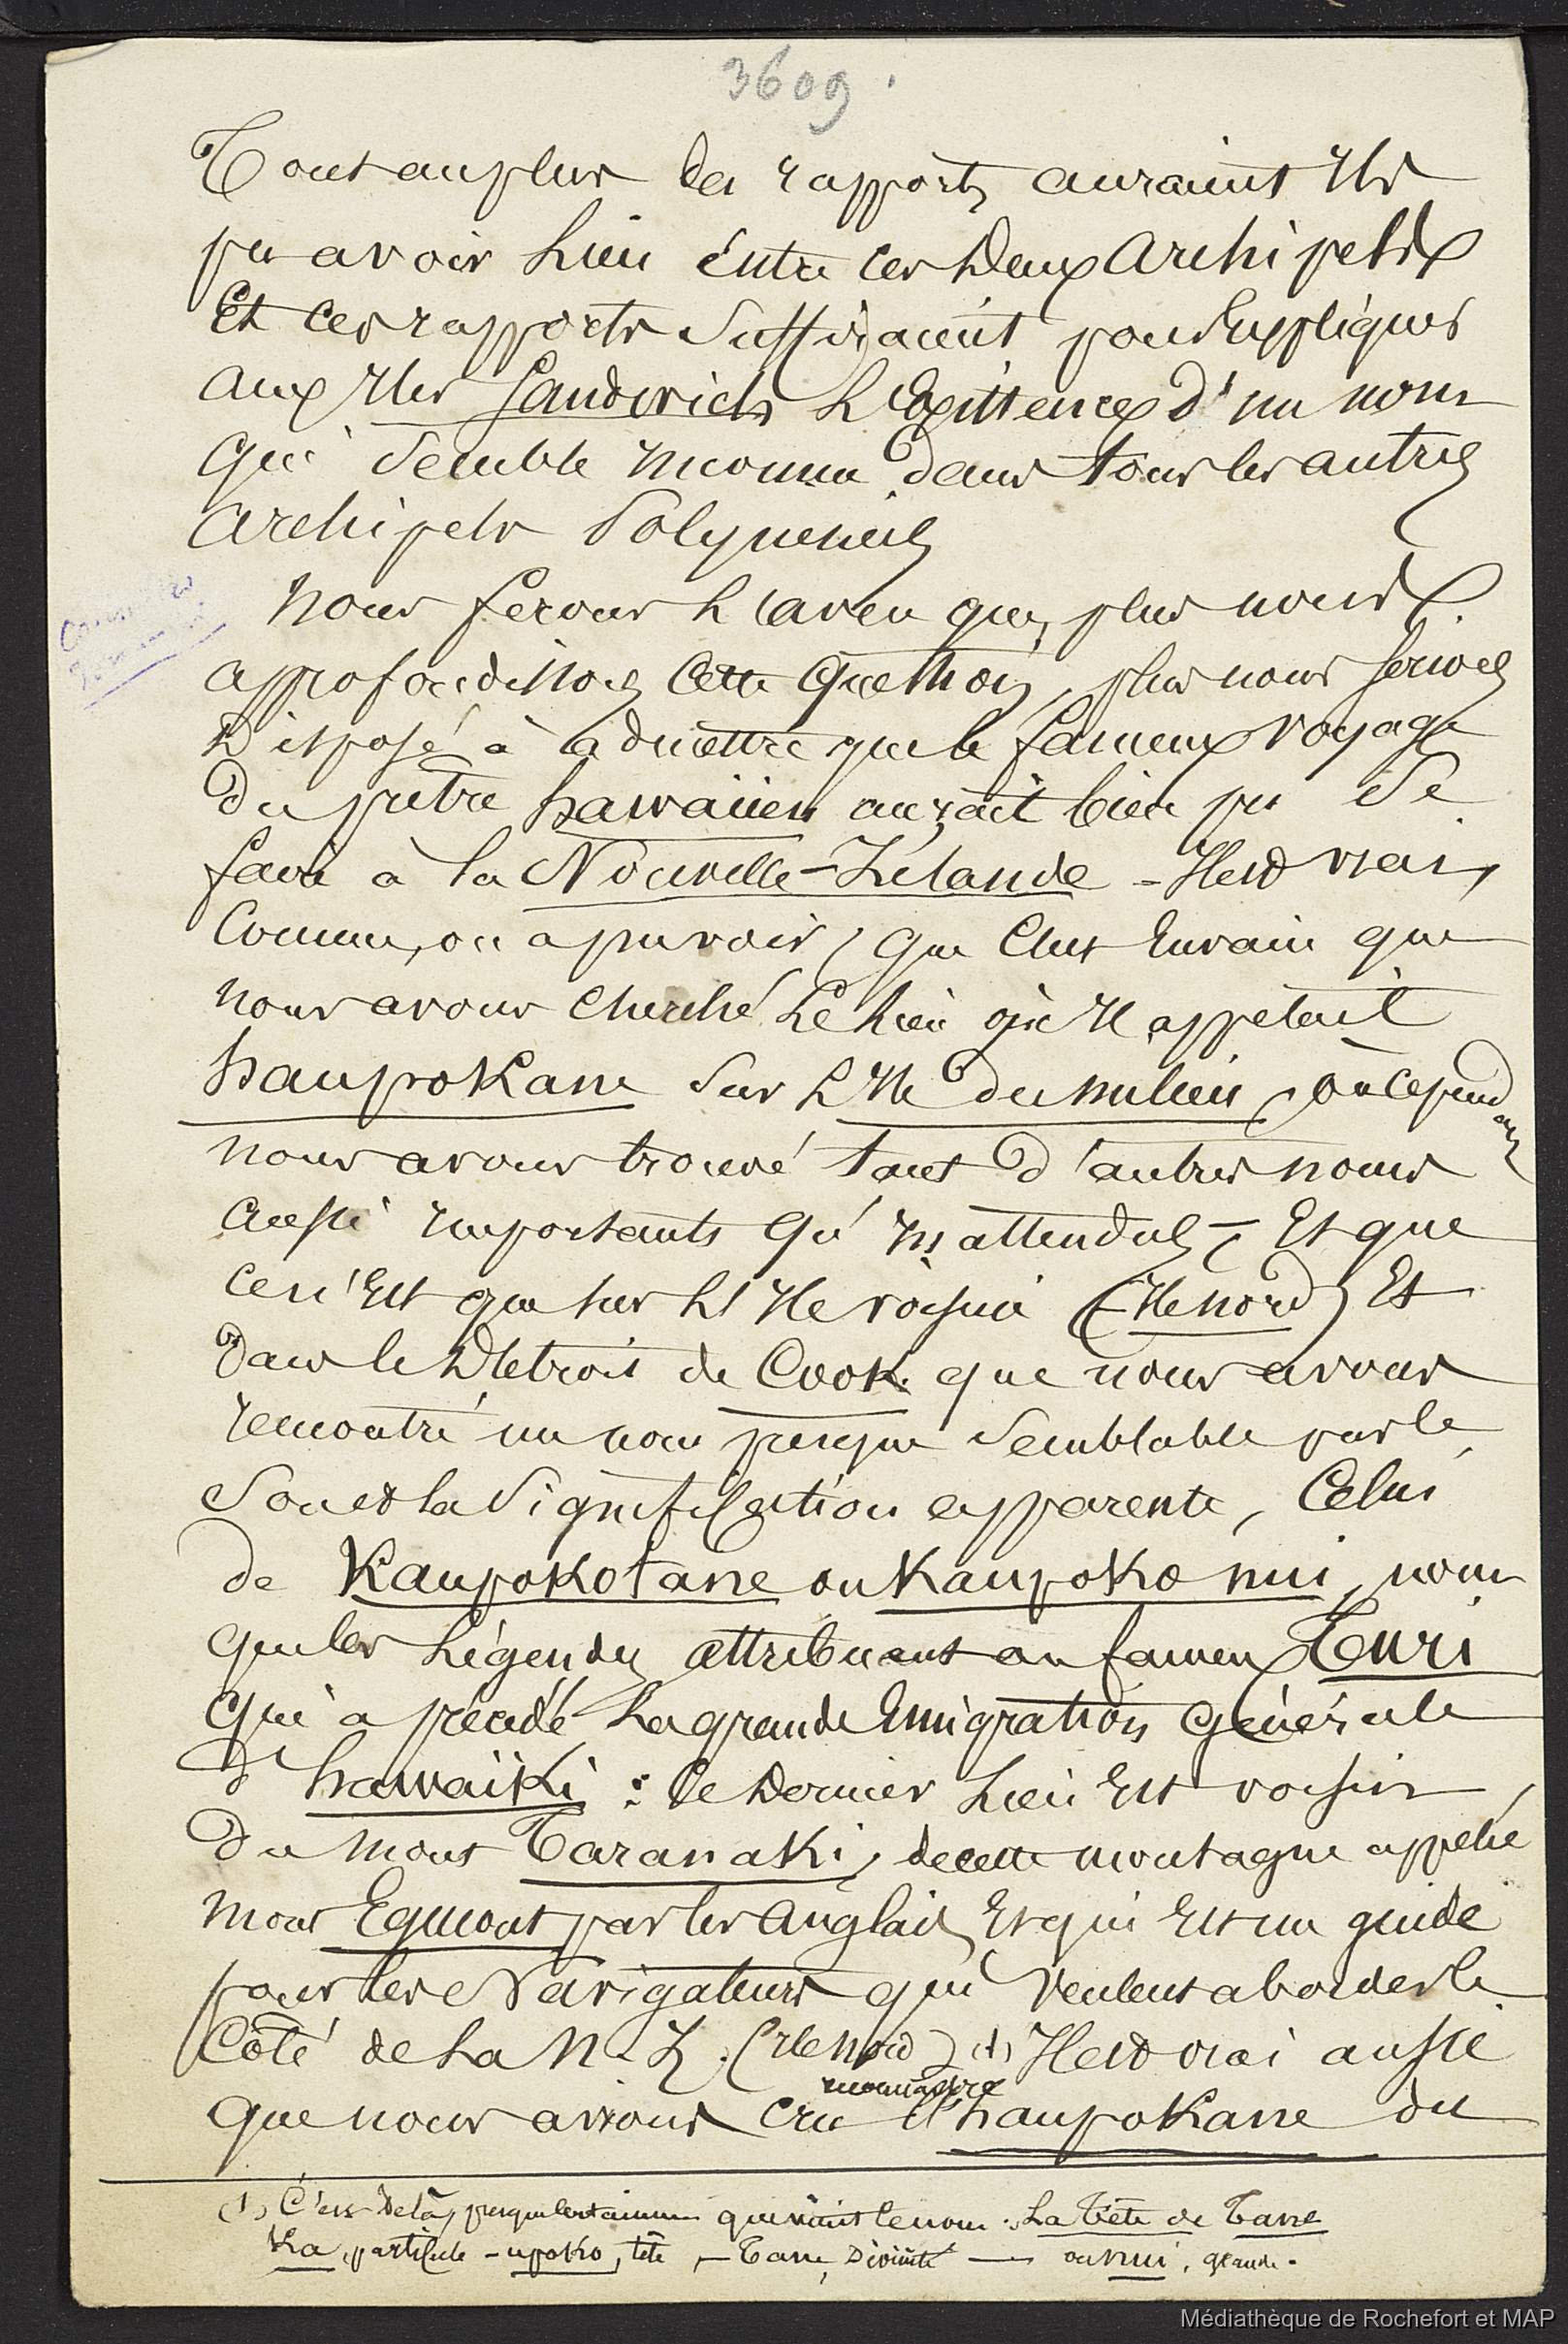 3609.
Tout au plus des rapports auraient ils
pu avoir lieu entre ces deux archipels
Et ces rapports suffiraient pour expliquer
aux Iles Sandwich l'existence d'un nom
qui semble inconnu dans tous les autres
archipels Polynesiens
nous ferons l'aveu que, plus nous
approfondissons cette question, plus nous serions
disposé à admettre que le fameux voyage
du prêtre hawaiien aurait bien pu se
faire à la Nouvelle-Zélande - Il est vrai,
comme, on a pu voir, que c'est envain que
nous avons cherché le lieu qu'il appelait
haupokane sur l'Ile du milieu, où cependant
nous avons trouvé tant d'autres noms
aussi importants qu'inattendus, - Et que
ce n'est que sur l'Ile voisine (Ile nord) Et
dans le Détroit de Cook que nous avons
rencontré un nom presque semblable par le
son et la signification apparente, Celui
de Kaupokotane ou Kaupoko nui, nom
que les légendes attribuent au fameux Turi
qui a précédé la grande Emigration générale
d'hawaïki : ce dernier lieu est voisin
du mont Taranaki, de cette montagne appelée
mont Egmont par les Anglais, Et qui est un guide
pour les Navigateurs qui veulent aborder le
Côté de la N. Z. (Ile Nord) (1) Il est vrai aussi
reconnaître
que nous avons cru l'haupokane du
(1) C'est de là, presque que vient le nom : La Tête de Tane
Ka, particule - upoko, tête, - Tane, Divinité — ou nui, grande.
Médiathèque de Rochefort et MAP